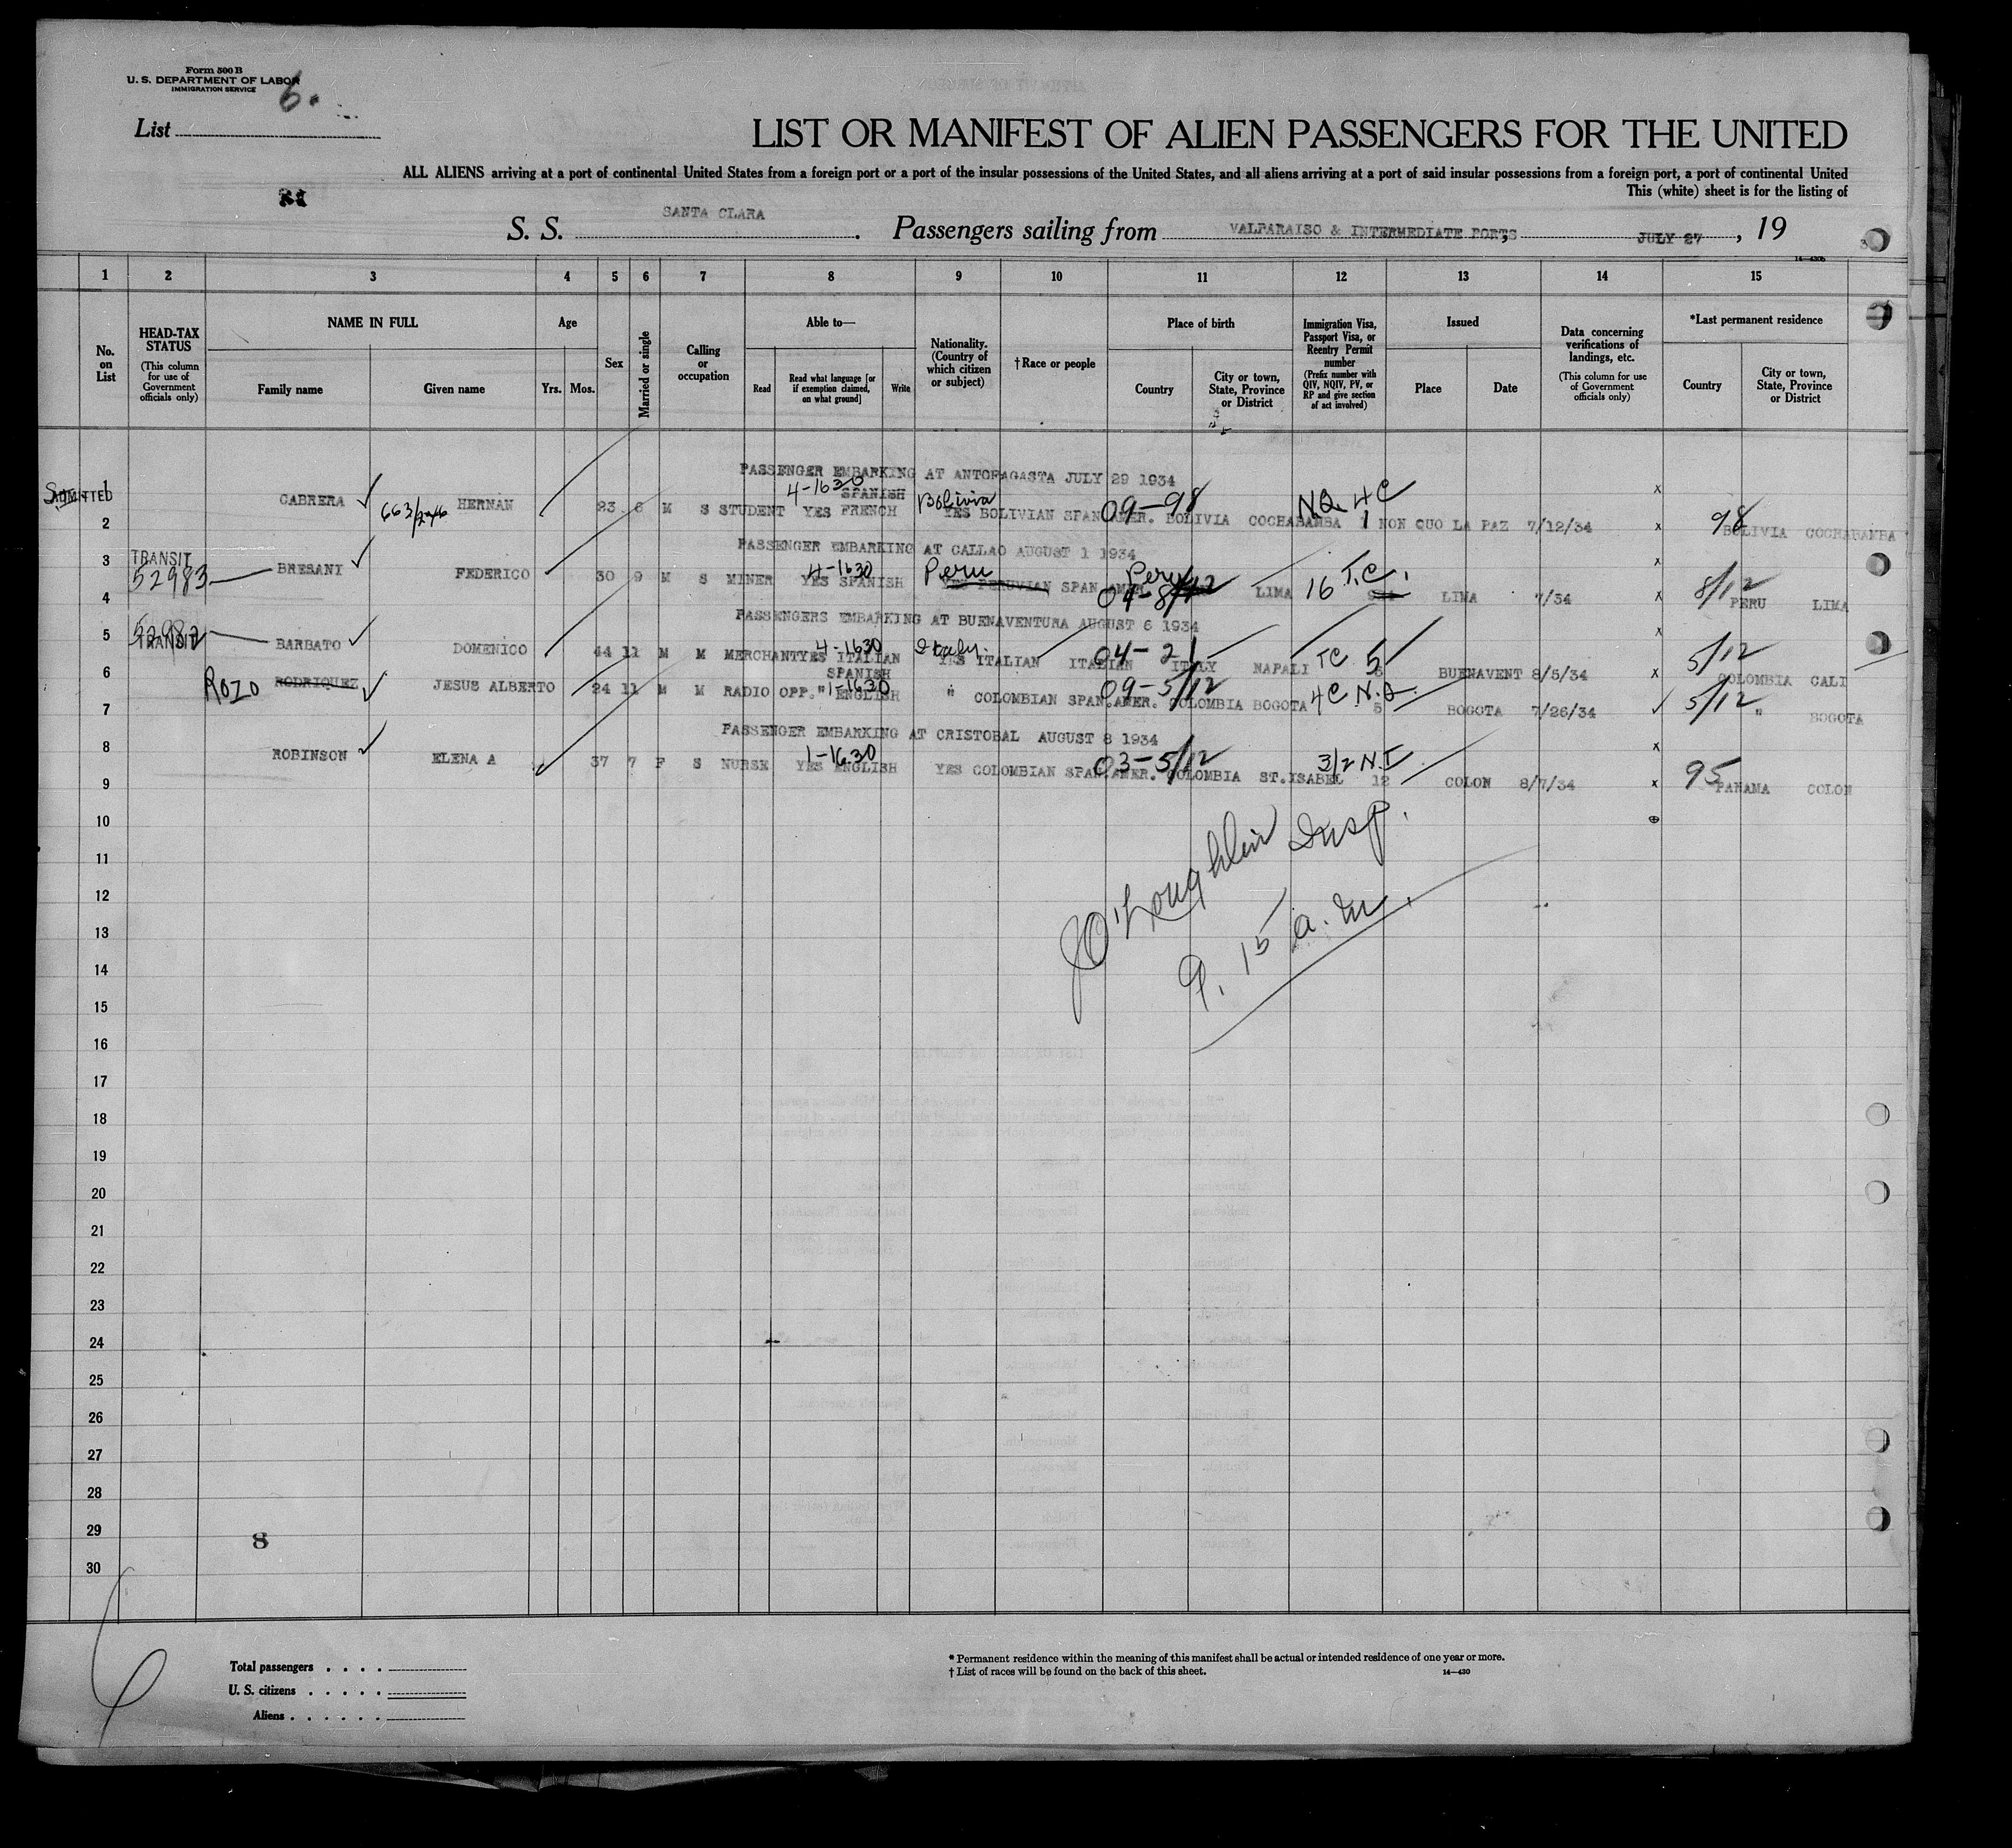 Form 500 B
U. S. DEPARTMENT OF LABOR
IMMIGRATION SERVICE
6.
List
LIST OR MANIFEST OF ALIEN PASSENGERS FOR THE UNITED
ALL ALIENS arriving at a port of continental United States from a foreign port or a port of the insular possessions of the United States, and all aliens arriving at a port of said insular possessions from a foreign port, a port of continental United
This (white) sheet is for the listing of
S. S. SANTA CLARA. Passengers sailing from VALPARAISO & INTERMEDIATE PORTS, JULY 27, 19 3
1 2 3 4 5 6 7 8 9 10 11 12 13 14 15
No. on List
HEAD-TAX STATUS
(This column for use of Government officials only)
NAME IN FULL
Family name
Given name
Age
Yrs.
Mos.
Sex
Married or single
Calling or occupation
Able to—
Read
Read what language [or if exemption claimed, on what ground]
Write
Nationality. (Country of which citizen or subject)
† Race or people
Place of birth
Country
City or town, State, Province or District
Immigration Visa, Passport Visa, or Reentry Permit number
(Prefix number with QIV, NQIV, PV, or RP and give section of act involved)
Issued
Place
Date
Data concerning verifications of landings, etc.
(This column for use of Government officials only)
*Last permanent residence
Country
City or town, State, Province or District
PASSENGER EMBARKING AT ANTOFAGASTA JULY 29 1934
4-1630 SPANISH
1 ADMITTED CABRERA 663/246 HERNAN 23 6 M S STUDENT YES FRENCH Bolivia YES BOLIVIAN SPAN.AMER. 09-98 BOLIVIA COCHABAMBA N.Q. 4C 1 NON QUO LA PAZ 7/12/34 x 98 BOLIVIA COCHABAMBA
2
PASSENGER EMBARKING AT CALLAO AUGUST 1 1934
3 TRANSIT 52983 BRESANI FEDERICO 30 9 M S MINER 4-1630 YES SPANISH Peru YES PERUVIAN SPAN.AMER. Peru 04-8/12 LIMA 16 T.C. LIMA 7/34 x 8/12 PERU LIMA
4
PASSENGERS EMBARKING AT BUENAVENTURA AUGUST 6 1934
5 52982 TRANSIT BARBATO DOMENICO 44 11 M M MERCHANT YES 4-1630 ITALIAN Italy. YES ITALIAN ITALIAN 04-21 ITALY NAPALI TC 5 BUENAVENT 8/5/34 x 5/12 COLOMBIA CALI
SPANISH
6 Rozo RODRIQUEZ JESUS ALBERTO 24 11 M M RADIO OPP. " 1-1630 ENGLISH " COLOMBIAN SPAN.AMER. 09-5/12 COLOMBIA BOGOTA 4C N.Q. 5 BOGOTA 7/26/34 5/12 " BOGOTA
7
PASSENGER EMBARKING AT CRISTOBAL AUGUST 8 1934
8 ROBINSON ELENA A 37 7 F S NURSE 1-1630 YES ENGLISH YES COLOMBIAN SPAN.AMER. 03-5/12 COLOMBIA ST.ISABEL 3/2 N.I 12 COLON 8/7/34 x 95 PANAMA COLON
9
10
JO'Loughlin Insp.
11
12
9.15 a.m.
13
14
15
16
17
18
19
20
21
22
23
24
25
26
27
28
29 8
30
Total passengers
U. S. citizens
Aliens
* Permanent residence within the meaning of this manifest shall be actual or intended residence of one year or more.
† List of races will be found on the back of this sheet.
14—430